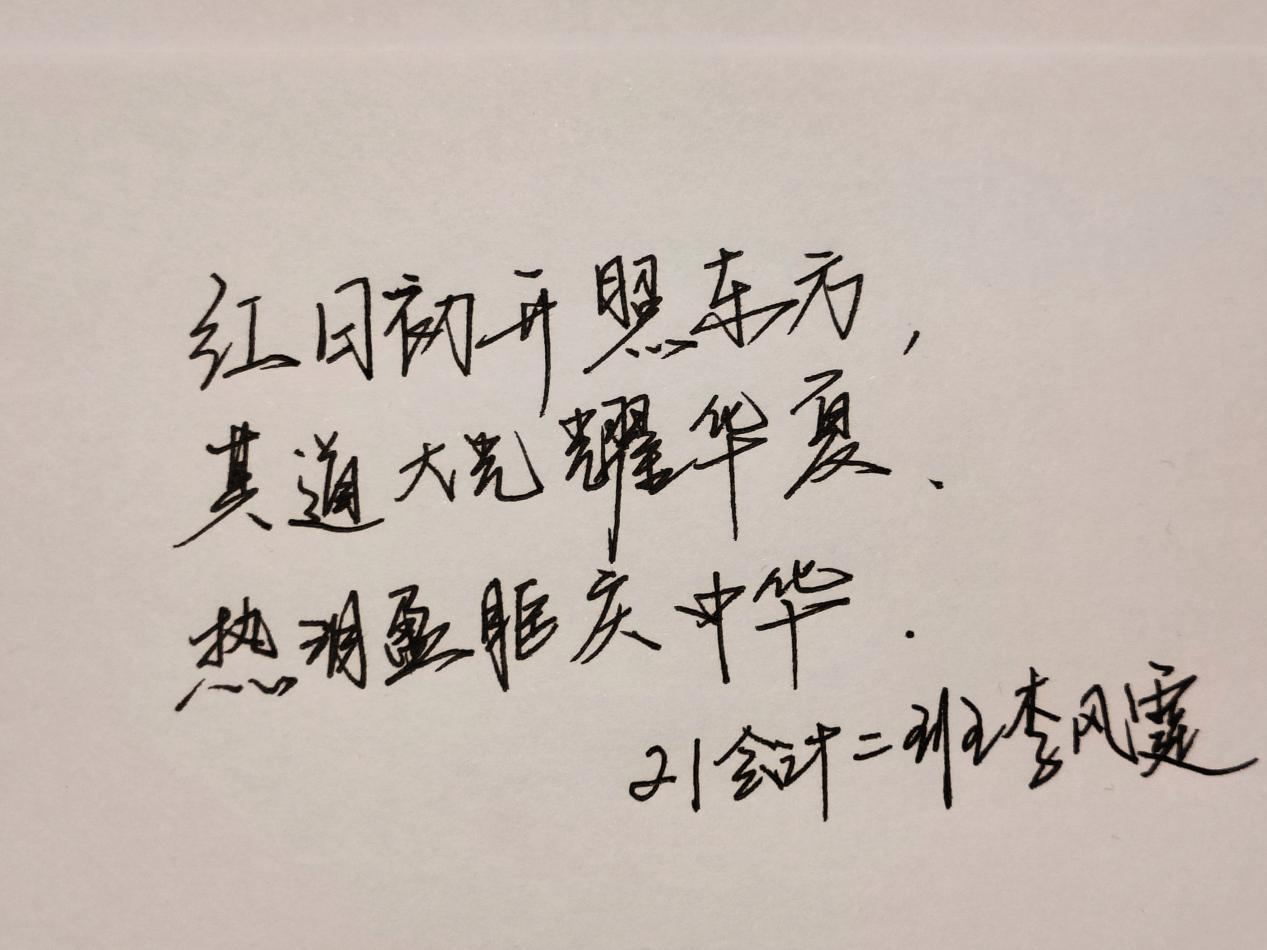 红日初开照东方,
其道大光耀华夏.
热泪盈眶庆中华.
21会计二班李风霆